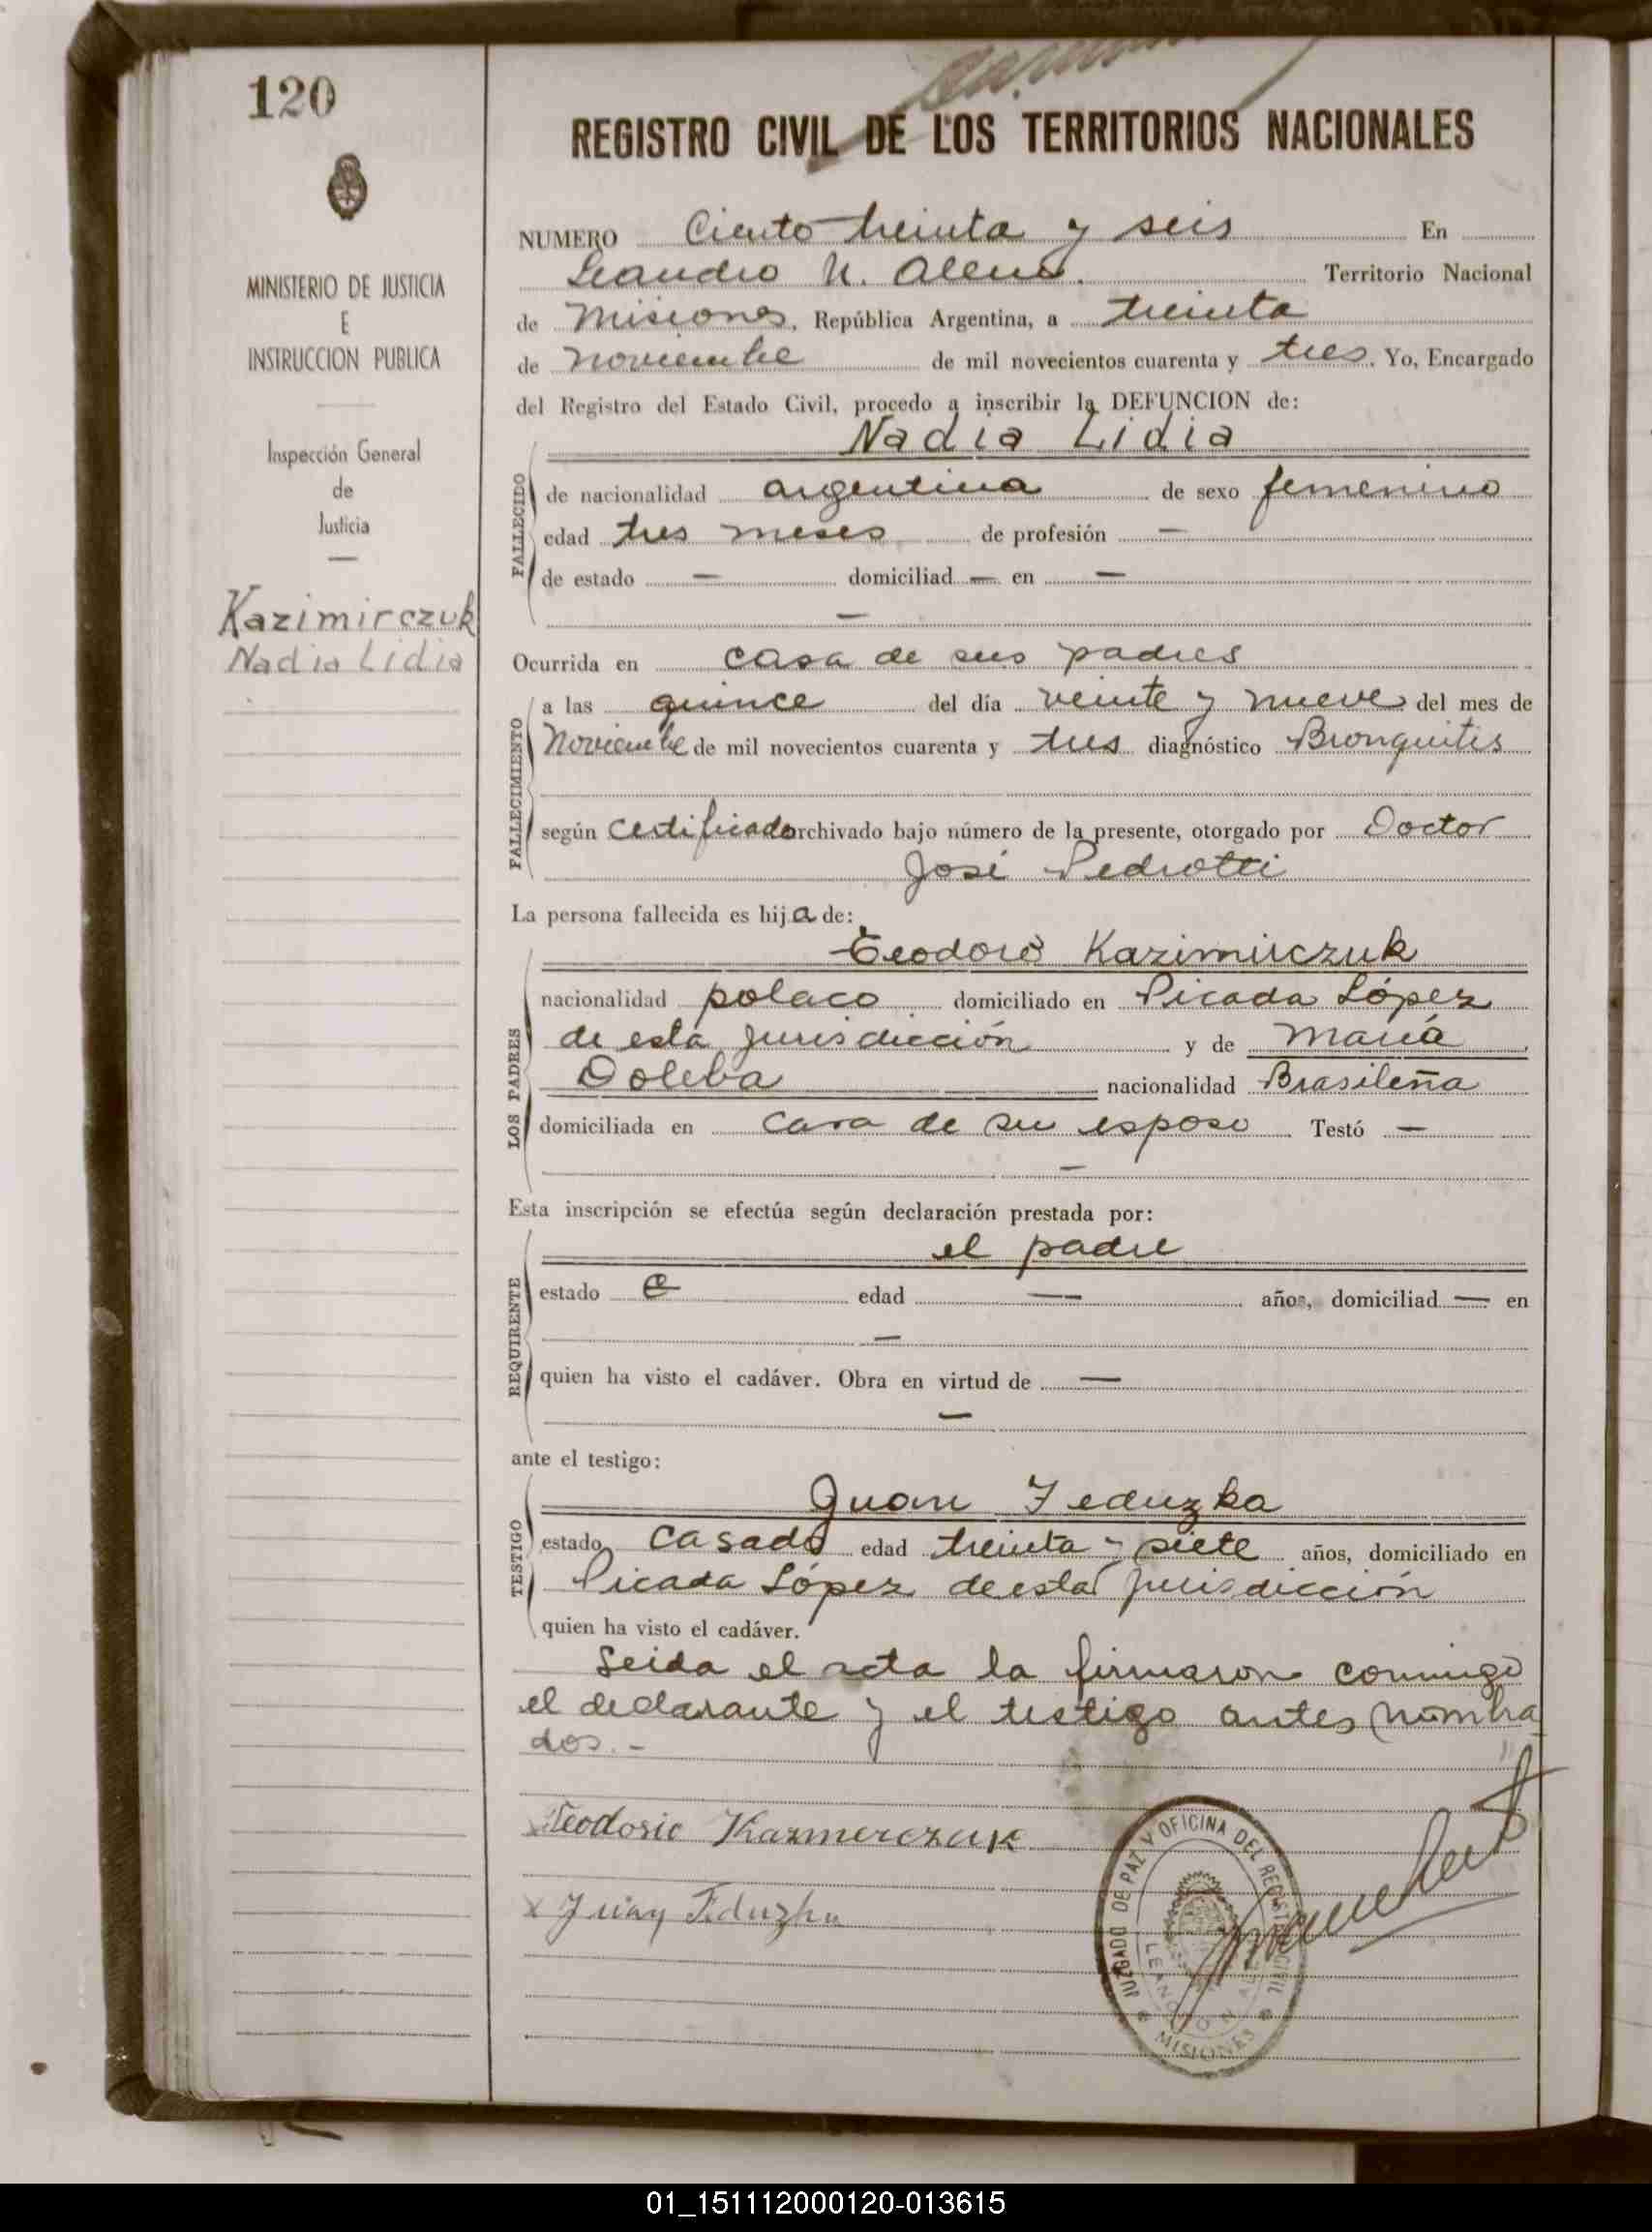 120
REGISTRO CIVIL DE LOS TERRITORIOS NACIONALES
MINISTERIO DE JUSTICIA
E
INSTRUCCION PUBLICA
Inspección General
de
Justicia
Kazimirczuk
Nadia Lidia
NUMERO Ciento treinta y seis En
Leandro N. Alem. Territorio Nacional
de Misiones, República Argentina, a treinta
de Noviembre de mil novecientos cuarenta y tres. Yo, Encargado
del Registro del Estado Civil, procedo a inscribir la DEFUNCION de:
Nadia Lidia
FALLECIDO
de nacionalidad argentina de sexo femenino
edad tres meses de profesión —
de estado — domiciliad — en —
—
Ocurrida en casa de sus padres
FALLECIMIENTO
a las quince del día veinte y nueve del mes de
Noviembre de mil novecientos cuarenta y tres diagnóstico Bronquitis
según certificado archivado bajo número de la presente, otorgado por Doctor
José Pedrotti
La persona fallecida es hija de:
LOS PADRES
Teodoro Kazimirczuk
nacionalidad polaco domiciliado en Picada López
de esta jurisdicción y de María
Doleba nacionalidad Brasileña
domiciliada en casa de su esposo Testó —
—
Esta inscripción se efectúa según declaración prestada por:
REQUIRENTE
el padre
estado edad — años, domiciliad — en
—
quien ha visto el cadáver. Obra en virtud de —
—
ante el testigo:
TESTIGO
Juan Feduzka
estado casado edad treinta y siete años, domiciliado en
Picada López de esta jurisdicción
quien ha visto el cadáver.
Leida el acta la firmaron conmigo
el declarante y el testigo antes nombra
dos.-
Teodosio Kazmerczuk
x Juan Feduzka
JUZGADO DE PAZ Y OFICINA DEL REGISTRO CIVIL
LEANDRO N. ALEM
MISIONES
01_151112000120-013615